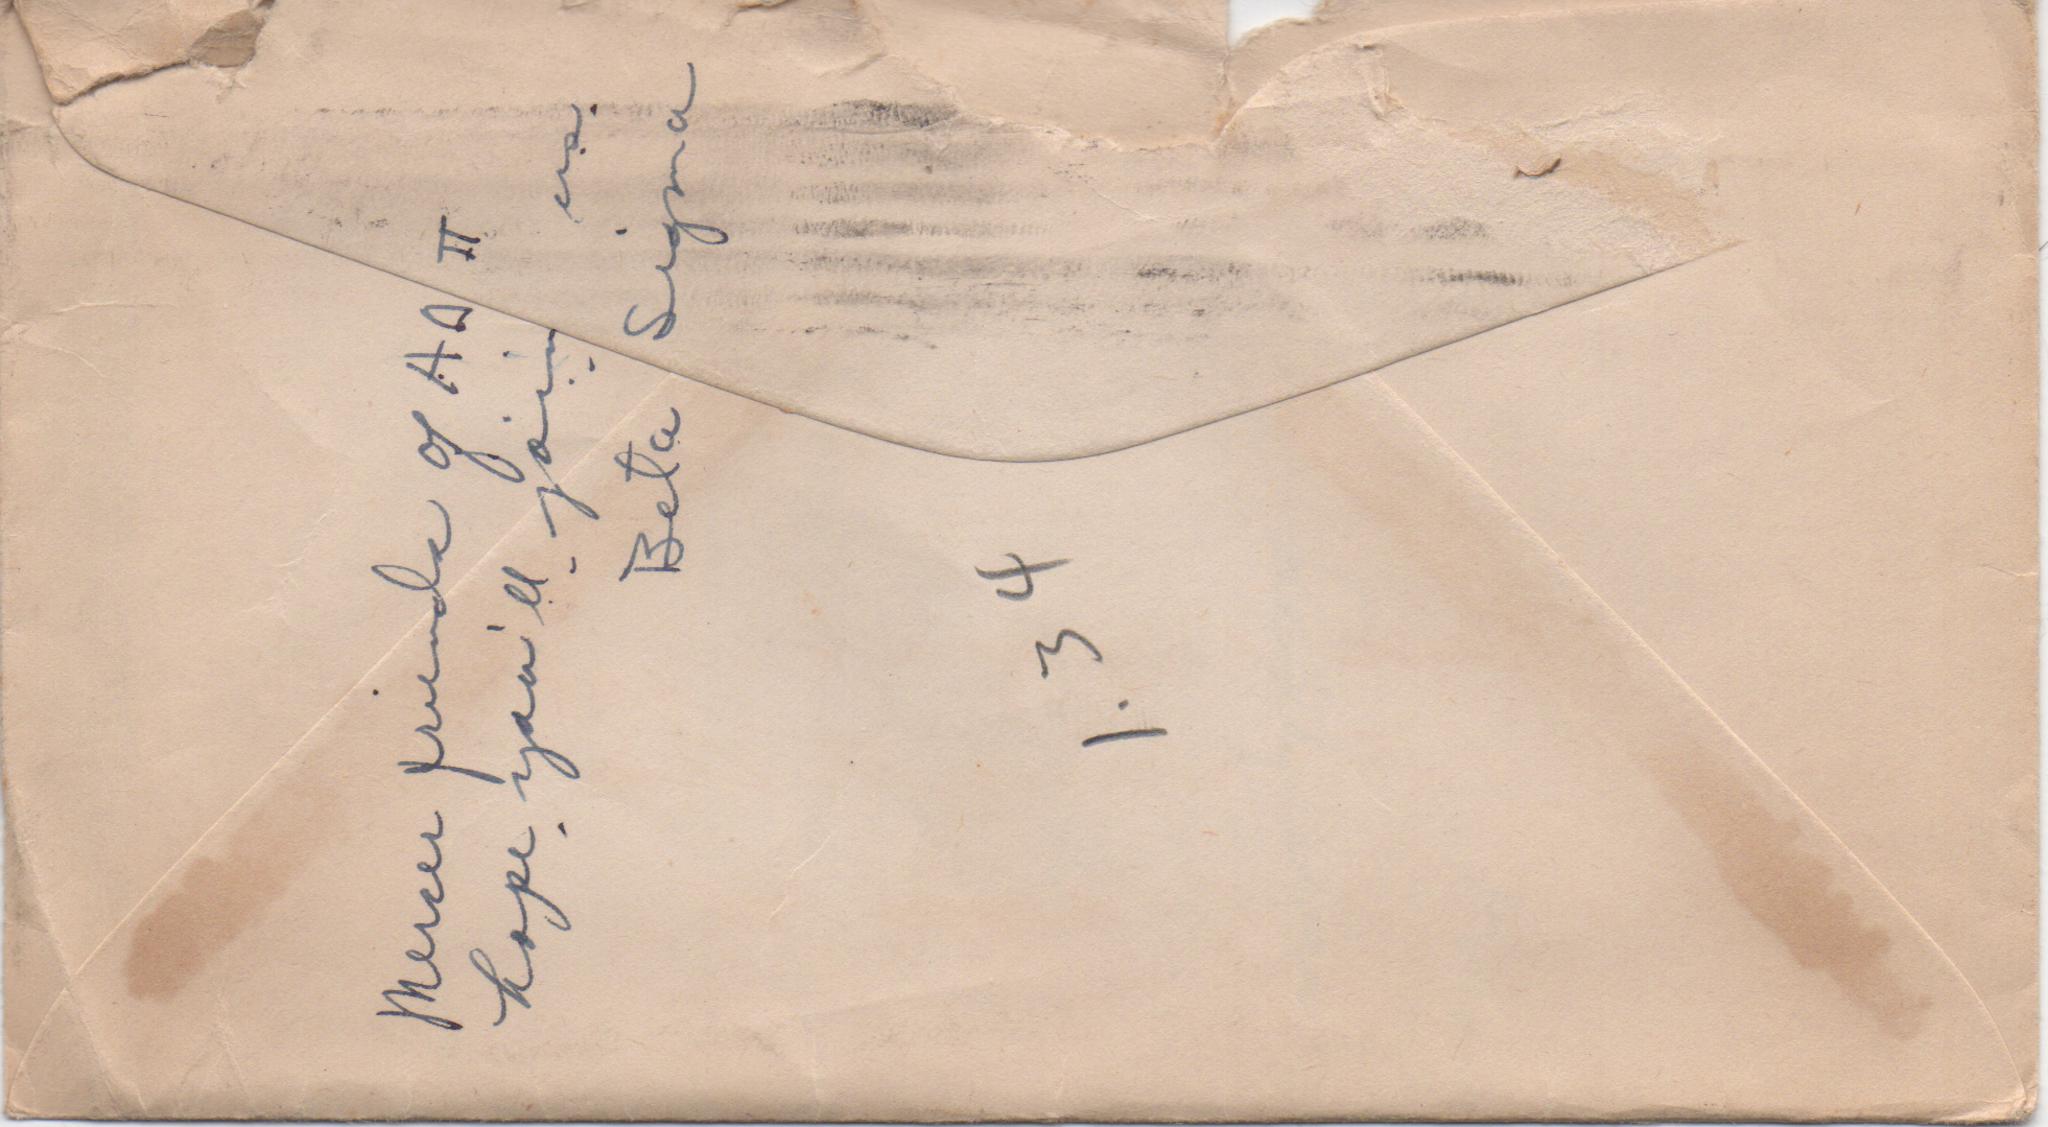 Mercer friends of ADπ
hope you'll join us.
Beta Sigma
1.34